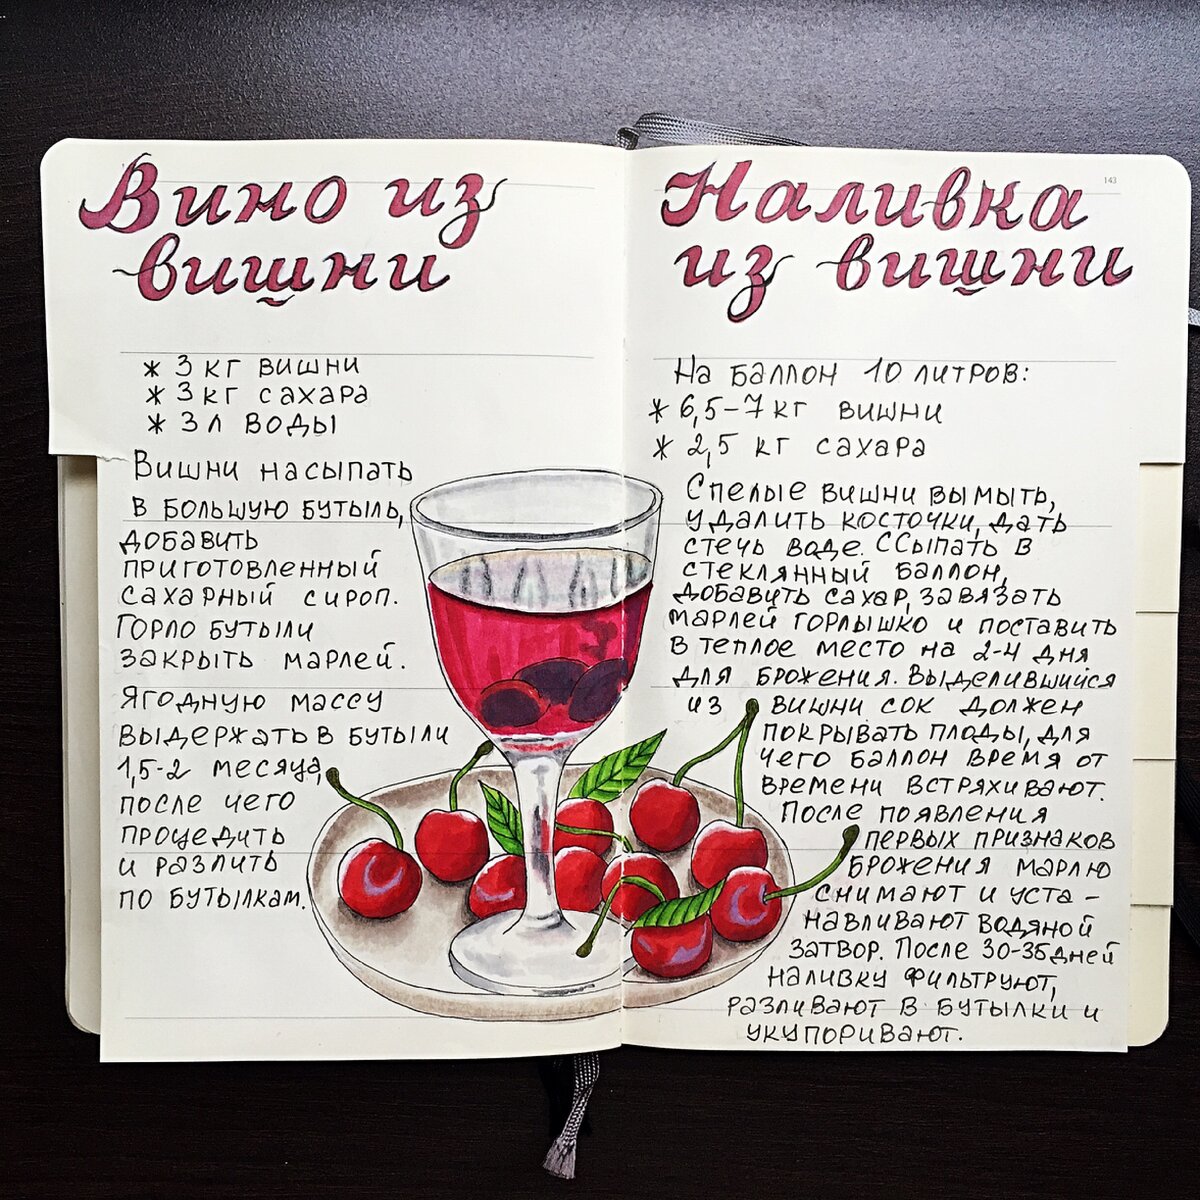 Вино из
вишни
* 3 кг вишни
* 3 кг сахара
* 3 л воды
Вишни насыпать
в большую бутыль,
добавить
приготовленный
сахарный сироп.
Горло бутыли
закрыть марлей.
Ягодную массу
выдержать в бутыли
1,5-2 месяца,
после чего
процедить
и разлить
по бутылкам.
143
Наливка
из вишни
На баллон 10 литров:
* 6,5-7 кг вишни
* 2,5 кг сахара
Спелые вишни вымыть,
удалить косточки, дать
стечь воде. Ссыпать в
стеклянный баллон,
добавить сахар, завязать
марлей горлышко и поставить
в теплое место на 2-4 дня
для брожения. Выделившийся
из вишни сок должен
покрывать плоды, для
чего баллон время от
времени встряхивают.
После появления
первых признаков
брожения марлю
снимают и уста-
навливают водяной
затвор. После 30-35 дней
наливку фильтруют,
разливают в бутылки и
укупоривают.